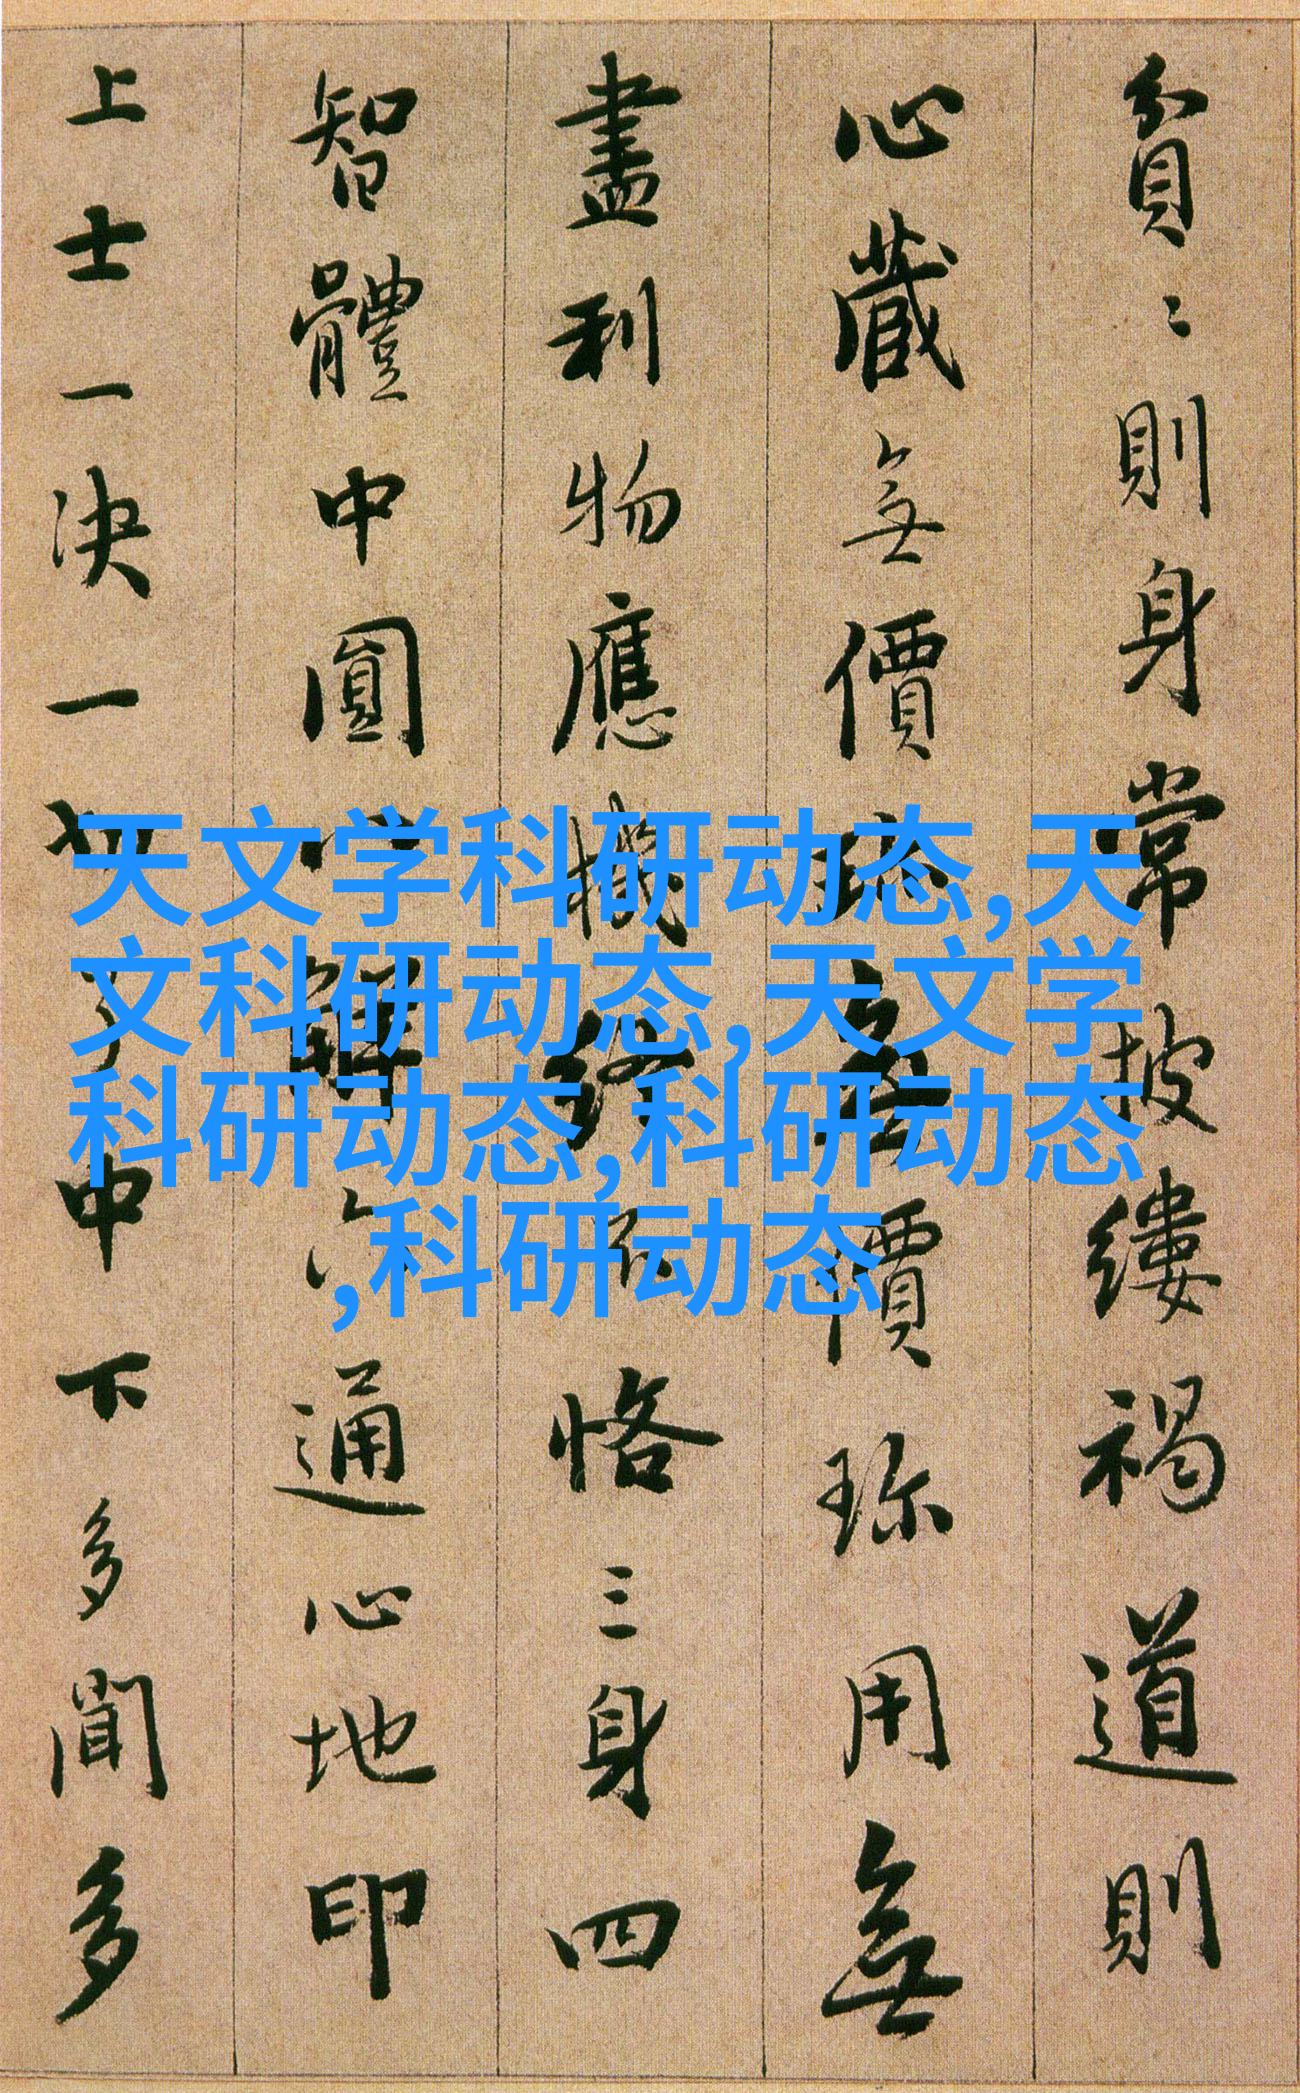 貧〻則身常披縷褐道則
心藏無價珎無價珎用無
盡利物應機終不恪三身四
智體中圓八解六通心地印
上士一決一切了中下多聞多
天文学科研动态,天
文科研动态,天文学
科研动态,科研动态
,科研动态